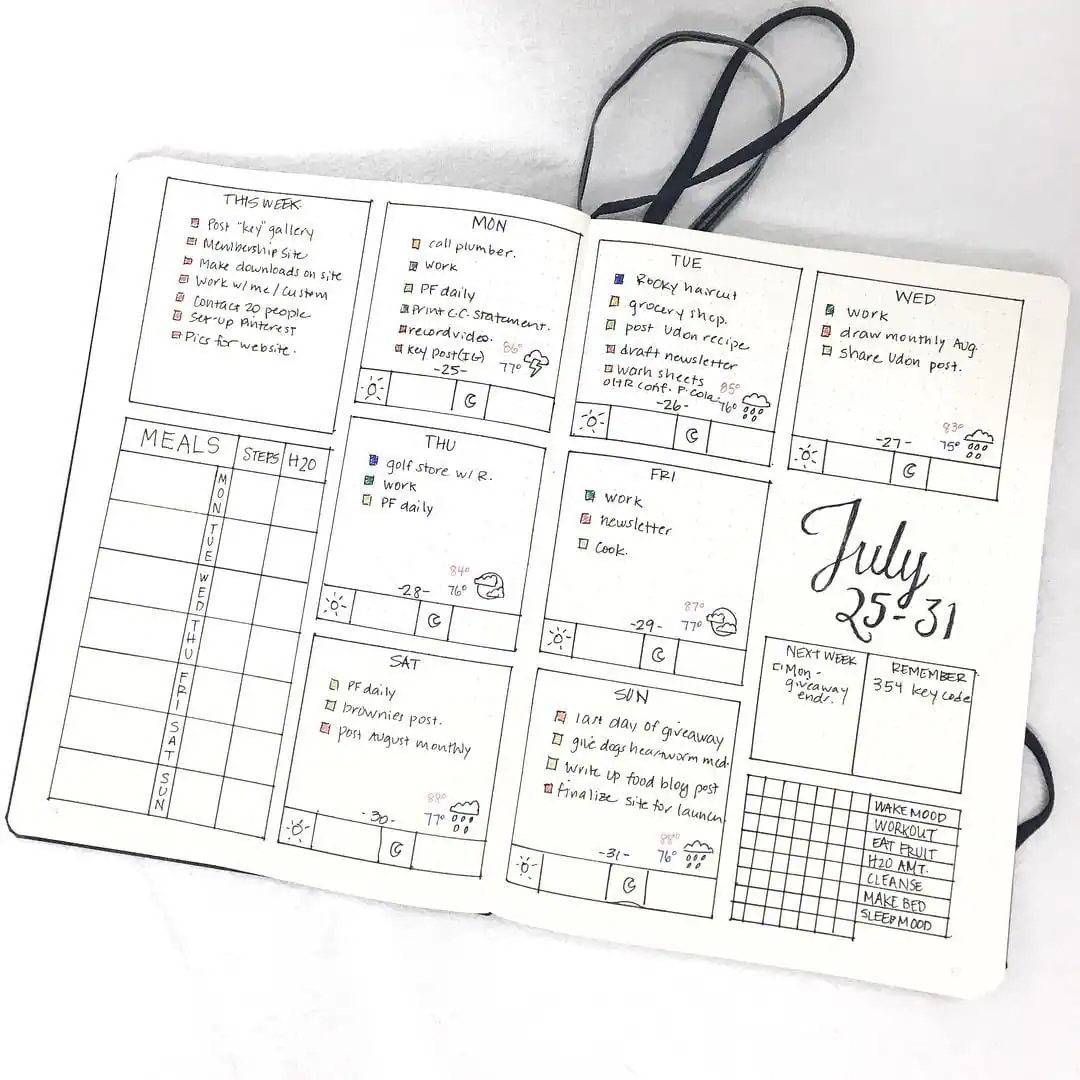 THIS WEEK
Post "key" gallery
Membership site
Make downloads on site
Work w/me/custom
Contact 20 people
Set-up Pinterest
Pics for website.
MON
call plumber.
work
PF daily
print C.C. statement.
record video.
key post (IG)
86°
77°
-25-
TUE
Rocky haircut
grocery shop.
post udon recipe
draft newsletter
wash sheets
conf. P.cola
85°
76°
-26-
WED
work
draw monthly Aug.
share udon post.
83°
75°
-27-
MEALS STEPS H20
MON
TUE
WED
THU
FRI
SAT
SUN
THU
golf store w/ R.
work
PF daily
84°
76°
-28-
FRI
work
newsletter
cook.
87°
77°
-29-
July
25-31
SAT
PF daily
brownies post.
post August monthly
88°
77°
-30-
SUN
last day of giveaway
give dogs heartworm med.
write up food blog post
finalize site for launch
88°
76°
-31-
NEXT WEEK
Mon-
giveaway
ends.
REMEMBER
354 key code
WAKE MOOD
WORKOUT
EAT FRUIT
H20 AMT.
CLEANSE
MAKE BED
SLEEP MOOD